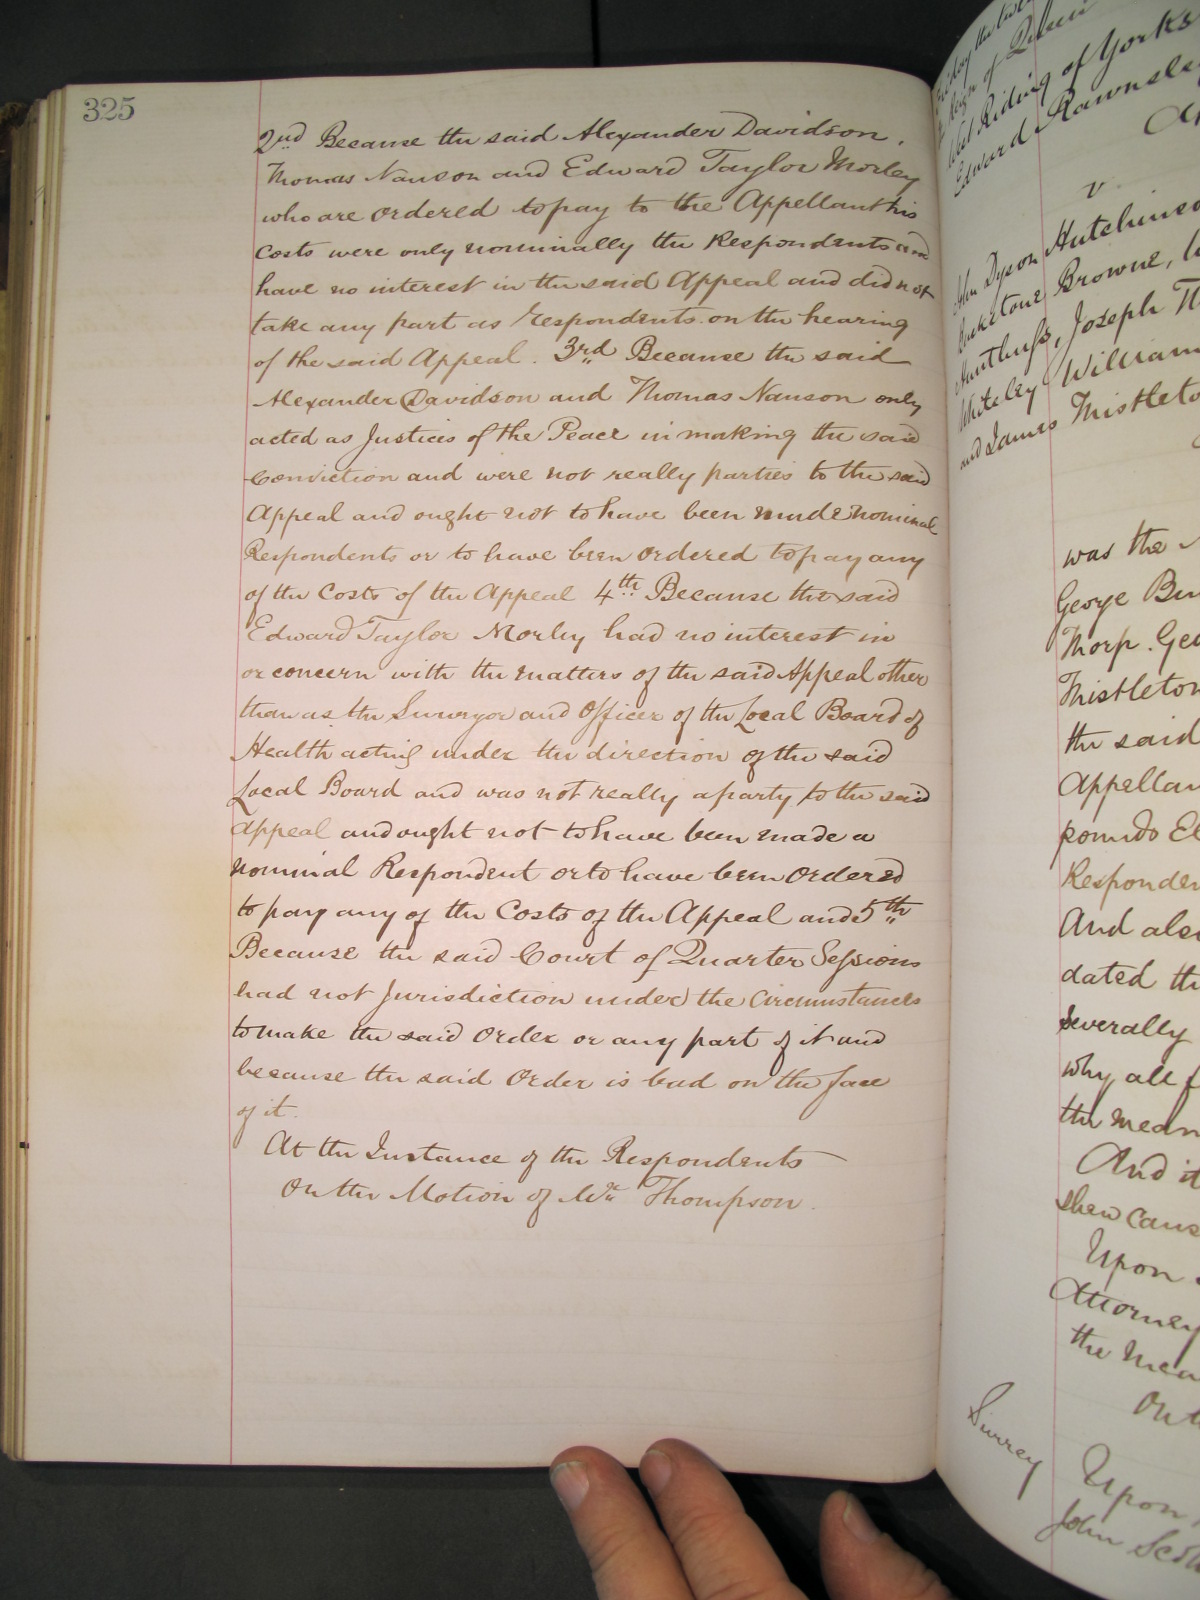 325
2nd Because the said Alexander Davidson,
Thomas Nanson and Edward Taylor Morley
who are ordered to pay to the Appellant his
Costs were only nominally the Respondents and
have no interest in the said Appeal and did not
take any part as Respondents on the hearing
of the said Appeal. 3rd Because the said
Alexander Davidson and Thomas Nanson only
acted as Justices of the Peace in making the said
Conviction and were not really parties to the said
Appeal and ought not to have been made nominal
Respondents or to have been ordered to pay any
of the Costs of the Appeal 4th Because the said
Edward Taylor Morley had no interest in
or concern with the matters of the said Appeal other
than as the Surveyor and Officer of the Local Board of
Health acting under the direction of the said
Local Board and was not really a party to the said
Appeal and ought not to have been made a
nominal Respondent or to have been Ordered
to pay any of the Costs of the Appeal and 5th
Because the said Court of Quarter Sessions
had not Jurisdiction under the Circumstances
to make the said Order or any part of it and
because the said Order is bad on the face
of it.
At the Instance of the Respondents
On the Motion of Mr Thompson.
Riding of Yorks
Edward Rawnsley
v
John Dyson Hutchinson
Browne,
Joseph Th
Whiteley William
and James Thistleto
was the
George Ben
Thorp. Geo
Thistleton
the said
Appellan
Responden
And also
dated th
severally
why all
the mean
And it
shew caus
Upon
Attorney
the mea
On t
Surrey
Upon
John Scot